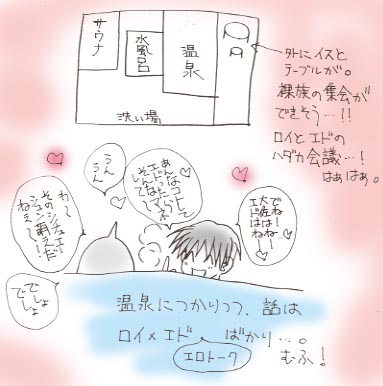 サウナ
水風呂
温泉
洗い場
外にイスと
テーブルが。
裸族の集会が
できそう…!!
ロイとエドの
ハダカ会議…!
はぁはぁ。
でねでね
大佐はー!
エドはねー
あんなコトして
エドったら
そんでね
うん
うん
わー
シチュエー
そのション萌え〜!だ
ねぇ〜
でしょ
でしょ
温泉につかりつつ、話は
ロイ×エド ばかり…。
エロトーク
むふ!